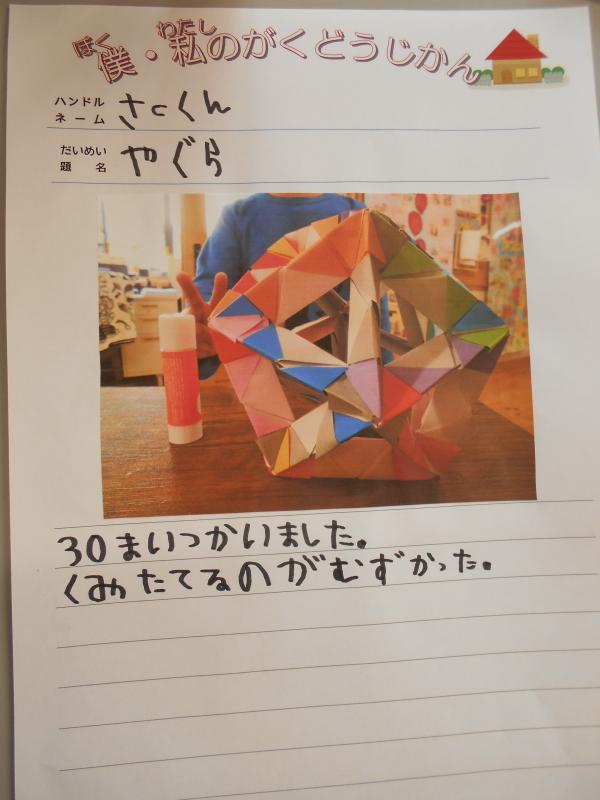 ぼく わたし
僕・私のがくどうじかん
ハンドルネーム さcくん
だいめい
題名 やぐら
30まいつかいました。
くみたてるのがむずかった。